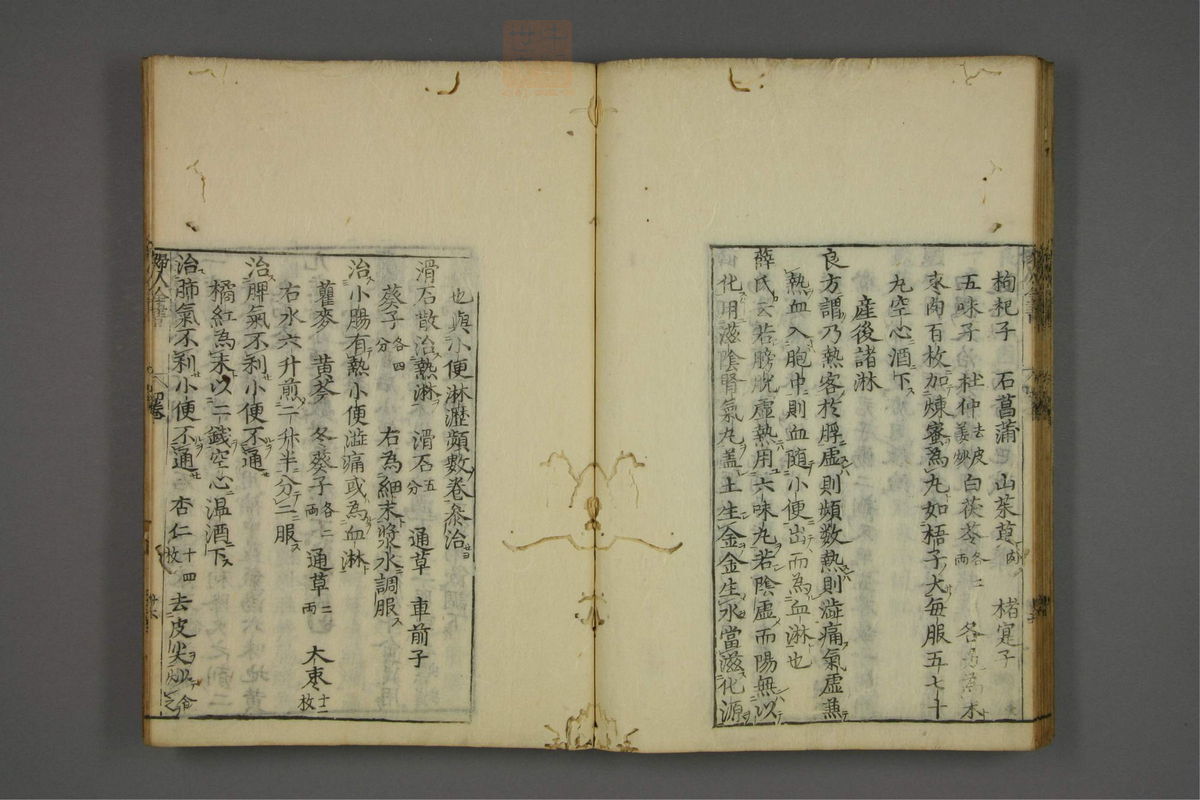 枸杞子　石菖蒲　山茱萸肉　楮寔子
五味子　杜仲去皮姜炒　白茯苓各二両　各為末
棗肉百枚加煉蜜為丸如梧子大每服五七十
丸空心酒下
産後諸淋
良方謂乃熱客於脬虛則頻數熱則澁痛氣虛兼
熱血入胞中則血隨小便出而為血淋也
薛氏云若膀胱虛熱用六味丸若陰虛而陽無以
化用滋陰腎氣丸蓋土生金金生水當滋化源
也與小便淋瀝頻數卷叅治
滑石散治熱淋　滑石五分　通草　車前子
葵子各四分　右為細末漿水調服
治小腸有熱小便澁痛或為血淋
瞿麥　黄芩　冬葵子各二両　通草二両　大枣十二枚
右水六升煎二升半分二服
治脾氣不利小便不通
橘紅為末以二錢空心温酒下
治肺氣不利小便不通　杏仁十四枚去皮尖
婦人全書